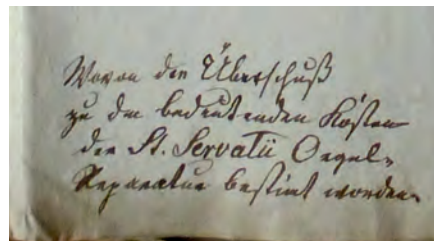 Wovon der Überschuß
zu den bedeutenden Kosten
der St. Servatii Orgel-
Reparatur bestimt worden.